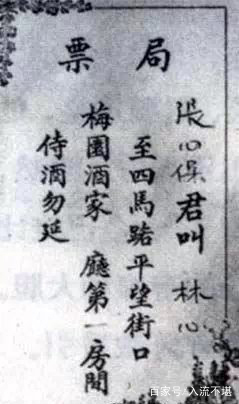 局票
張心保君叫 林心
至四馬路平望街口
梅園酒家 廳第一房間
侍酒勿延
百家号/入流不堪